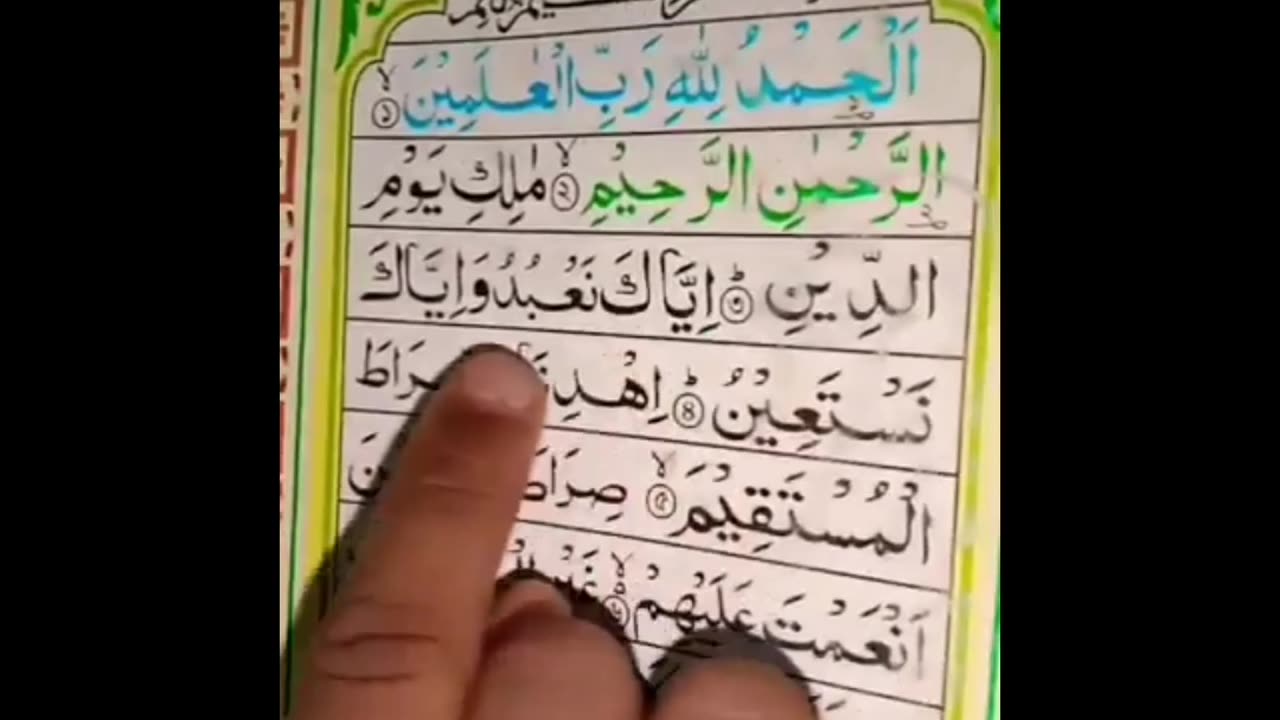 اَلْحَمْدُ لِلّٰهِ رَبِّ الْعٰلَمِيْنَ ۙ﴿۱﴾
الرَّحْمٰنِ الرَّحِيْمِ ۙ﴿۲﴾ مٰلِكِ يَوْمِ
الدِّيْنِ ؕ﴿۳﴾ اِيَّاكَ نَعْبُدُ وَاِيَّاكَ
نَسْتَعِيْنُ ؕ﴿۴﴾ اِهْدِنَا
الْمُسْتَقِيْمَ ۙ﴿۵﴾ صِرَاطَ
اَنْعَمْتَ عَلَيْهِمْ ۙ۬﴿۶﴾ غَيْرِ